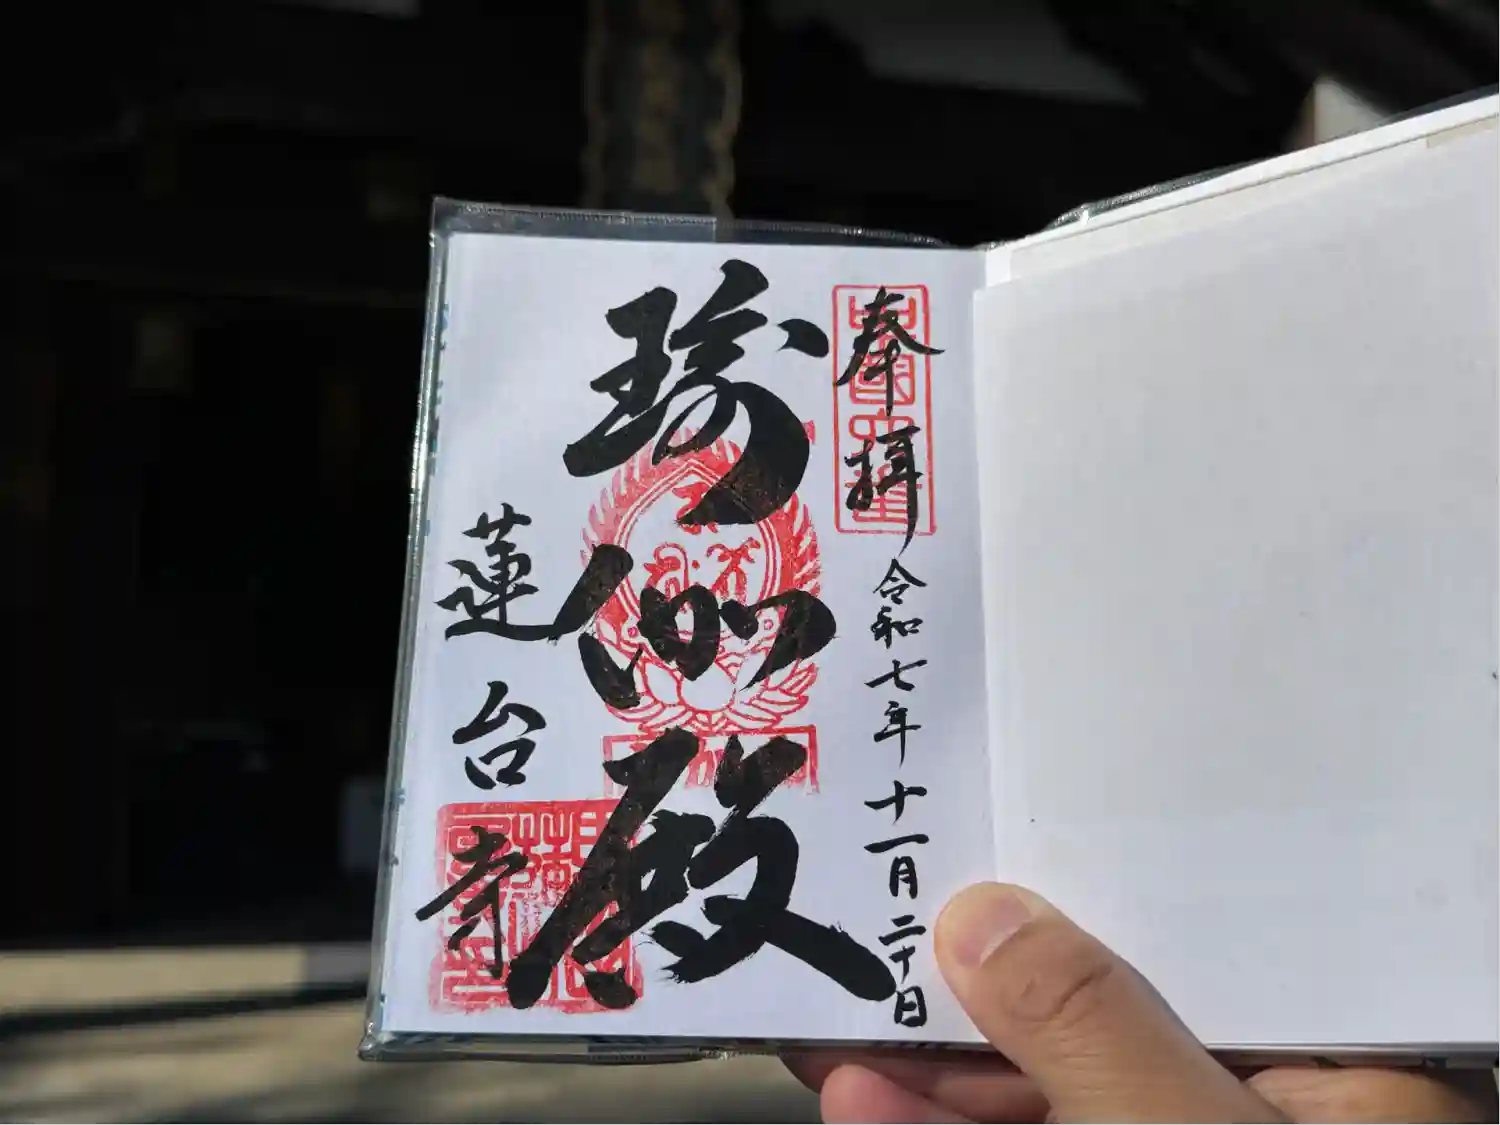 奉拝
令和七年十一月二十日
瑜伽殿
蓮台寺